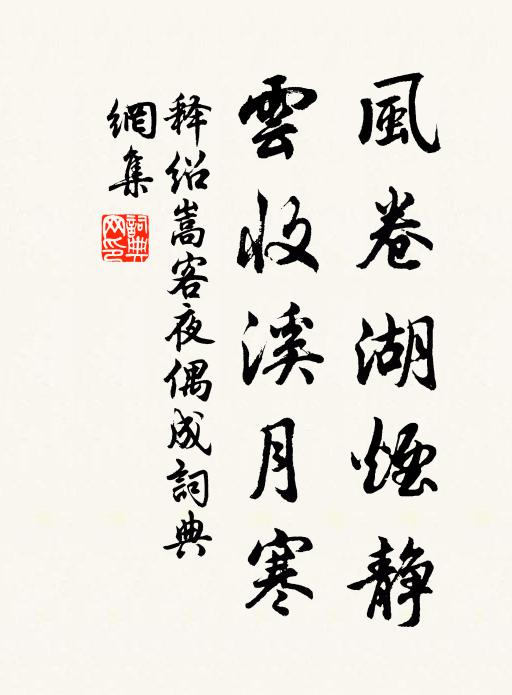 風卷湖煙静
雲收溪月寒
释绍嵩客夜偶成詞典
網集
詞典
网印